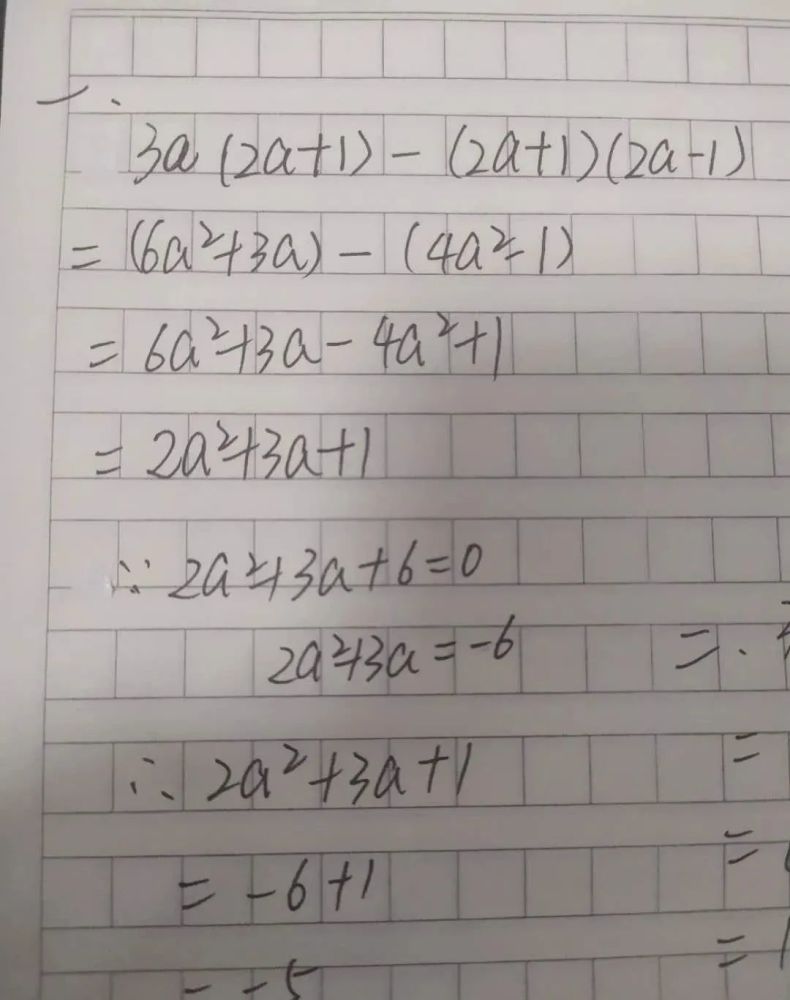 一.
3a(2a+1)-(2a+1)(2a-1)
=(6a²+3a)-(4a²-1)
=6a²+3a-4a²+1
=2a²+3a+1
∵ 2a²+3a+6=0
2a²+3a=-6
∴ 2a²+3a+1
=-6+1
=-5
二.
=
=
=